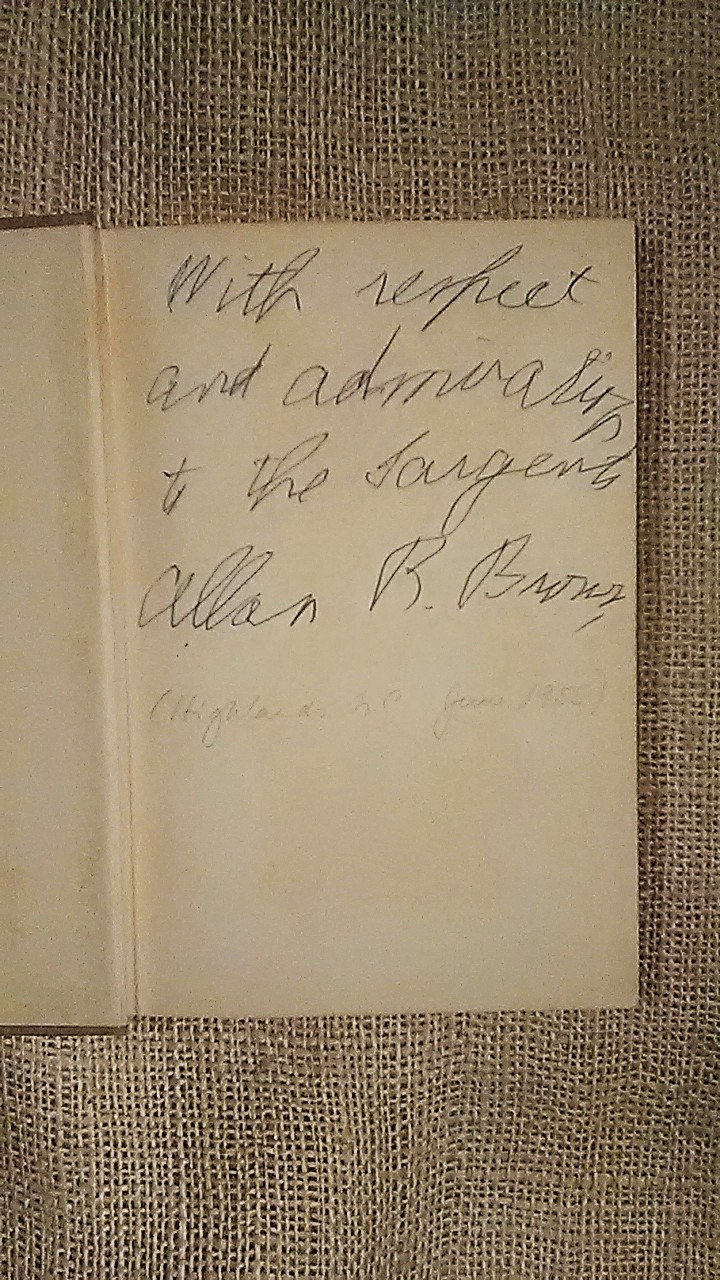 With respect
and admiration
to the Sargents
Allan R. Brown
(Highlands N.C. June 195